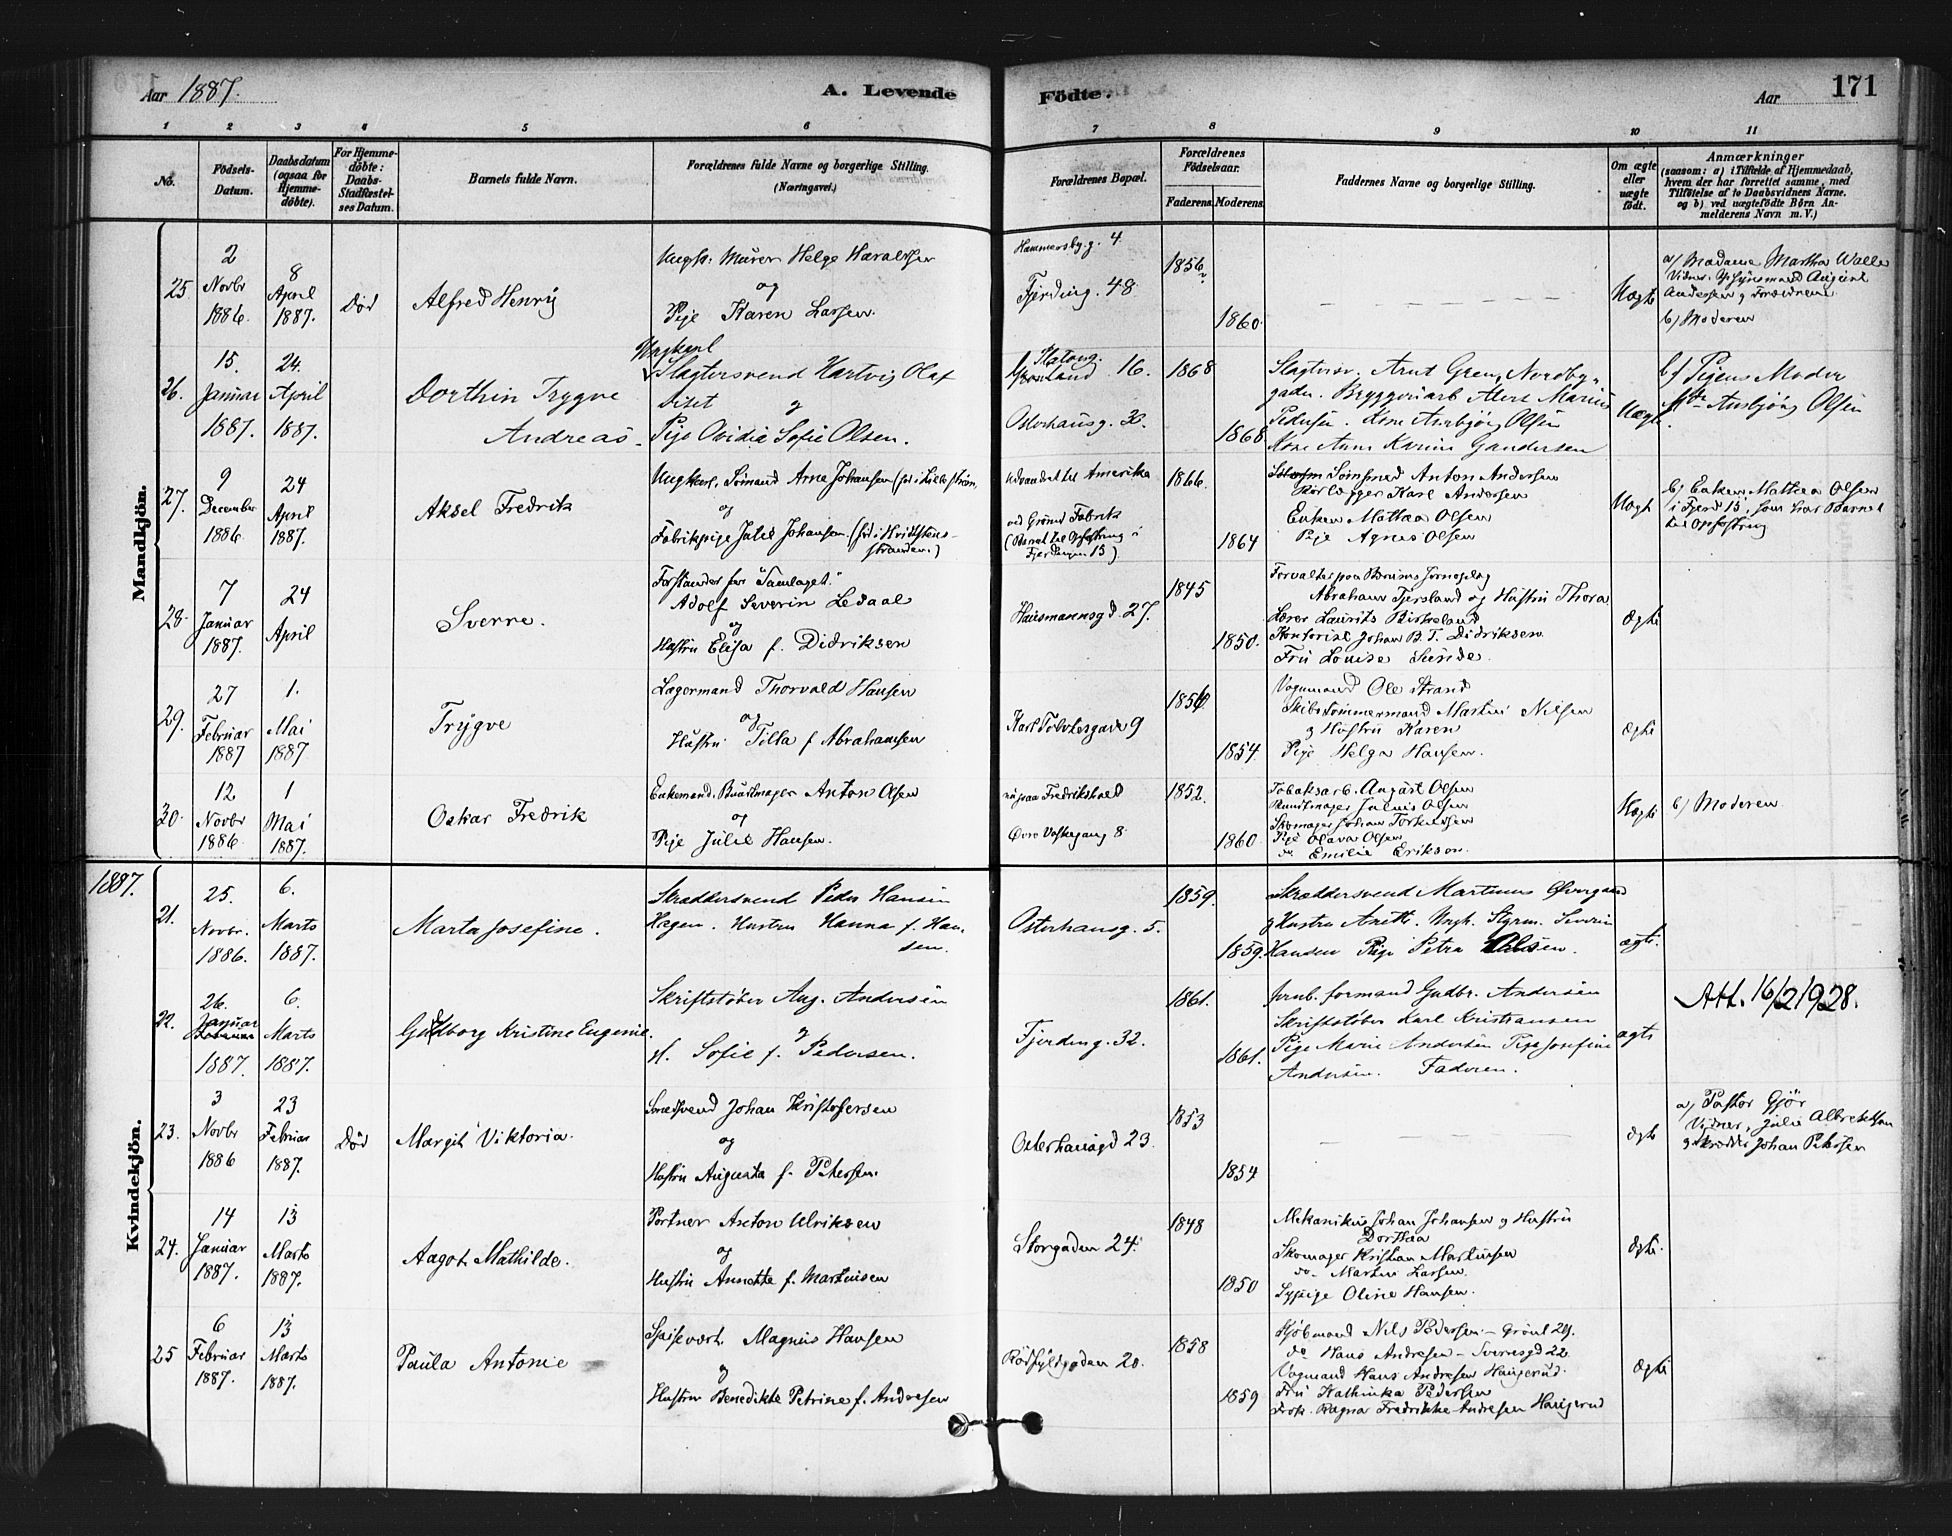 Aar 1887.
A. Levende
Födte.
Aar
171
1 2 3 4 5 6 7 8 9 10 11
No.
Födsels-
Datum.
Daabsdatum
(ogsaa for
Hjemme-
döbte).
For Hjemme-
döbte:
Daabs-
Stadfæstel-
ses Datum.
Barnets fulde Navn.
Forældrenes fulde Navne og borgerlige Stilling.
(Næringsvei.)
Forældrenes Bopæl.
Forældrenes
Födselsaar.
Faderens. Moderens.
Faddernes Navne og borgerlige Stilling.
Om ægte
eller
uægte
födt.
Anmærkninger
(saasom: a) i Tilfælde af Hjemmedaab,
hvem der har forrettet samme, med
Tilföielse af to Daabsvidners Navne.
og b) ved uægtefödte Börn An-
melderens Navn m.V.)
Mandkjön.
25.
2
Novbr
1886.
8
April
1887.
Död
Alfred Henry
Ungk. Murer Helge Haralsen
og
Pige Karen Larsen.
Hammersbg.g. 4
Fjerding. 48
1856
1860.
Uægte
a) Madame Martha Walle
Vidner
August
Andersen og Forældrene
b) Moderen
26.
15.
Januar
1887.
24.
April
1887.
Dorthin Trygve
Andreas.
Ungkarl
Slagtersvend Hartvig Olaf
og
Pige Ovidia Sofie Olsen.
16.
Osterhausg. 30.
1868
1868
Slagtersv. Arnt Gren, Nordby-
gaden. Bryggeriarb
Marius
Pedersen. Kone Ansbjörg Olsen
Kone Anne Karine Gundersen
Uægte
b) Pigens Moder
Ansbjörg Olsen
27.
9
December
1886
24
April
1887.
Aksel Fredrik
Ungkarl, Sömand Arne Johansen (fd i Lilleström)
og
Fabrikpige Julie Johansen (fd i Hvidtsten-
stranden.)
udvandret til Amerika
ved Grönv. Fabrik
(Barnet til Opfostring i
Fjerdingen 15)
1866.
1864
Sömand Anton Andersen
Rörlægger Karl Andersen
Enken Mathea Olsen
Pige Agnes Olsen
Uægte
b) Enken Mathea Olsen
i Fjerd 15, som har Barnet
til Opfostring
28.
7
Januar
1887.
24
April
Sverre.
Forstander for "Samlaget."
Adolf Severin Ledaal
og
Hustru Elisa f. Didriksen
Hausmannsgd 27.
1845
1850.
Forvalter paa Bærums Jernværk
Abraham Tjersland og Hustru Thora
Lærer Laurits Birkeland
Kontorist Johan B. T. Didriksen
Fru Louise Sunde.
Ægte
29.
27
Februar
1887
1.
Mai
1887.
Trygve
Lagermand Thorvald Hansen
og
Hustru Tilla f Abrahamsen
9
1856
1854.
Vognmand Ole Strand
Skibstömmermand Martin Nilsen
og Hustru Karen
Pige Helga Hansen.
Ægte
30.
12
Novbr
1886.
1
Mai
1887.
Oskar Fredrik
Enkemand. Buntmager Anton Olsen
og
Pige Julie Hansen.
nu paa Fredrikshald
Övre Voldgang 8.
1852.
1860
Tobaksarb. August Olsen
Buntmager Julius Olsen
Skomager Johan Torkildsen
Pige Olava Olsen
do Emilie Erikson.
Uægte
b) Moderen
Kvindekjön.
1887.
21.
25.
Novbr.
1886.
6.
Marts
1887.
Marta Josefine.
Skræddersvend Peder Hansen
Hagen. Hustru Hanna f. Han-
sen.
Osterhausg. 5.
1859.
1859.
Skræddersvend Martinus Övergaard
og Hustru Anette. Ungk. Styrm. Severin
Hansen Pige Petra Olsen.
ægte.
22.
26.
Januar
1887.
6.
Marts
1887.
Gudborg Kristine Eugenie.
Skriftstöber Aug. Andersen
og
H. Sofie f. Pedersen.
Fjerding. 32.
1861.
1861.
Jernb. formand Gudbr. Andersen
Skriftstöber Karl Kristiansen
Pige Marie Andersen Pige Josefine
Andersen. Faderen.
ægte
Att. 16/2 1928.
23.
3
Novbr
1886
23
Februar
1887.
Död
Margit Viktoria.
Smedsvend Johan Kristofersen
og
Hustru Augusta f. Petersen.
Osterhausgd 23.
1853
1854
ægte
a) Pastor Gjör
Vidner, Julie Albrektsen
og Skrædder Johan Petersen
24.
14
Januar
1887.
13
Marts
1887.
Aagot Mathilde.
Portner Anton Ulriksen
og
Hustru Annette f. Martinsen
Storgaden 24.
1848
1850
Mekanikus Johan Johansen og Hustru
Dorthea
Skomager Kristian Martinsen
do. Martin Larsen.
Sypige Oline Hansen.
ægte.
25
6
Februar
1887.
13
Marts
1887.
Paula Antonie
Spisevært. Magnus Hansen
og
Hustru Benedikte Petrine f. Andresen
Rödfyldgaden 20.
1858
1859
Kjöbmand Nils Pedersen - Grönl 29.
do Hans Andresen - Sverresgd 22
Vognmand Hans Andresen Haugerud.
Fru Kathinka Pedersen
Frök. Ragna Fredrikke Andresen Haugerud
ægte